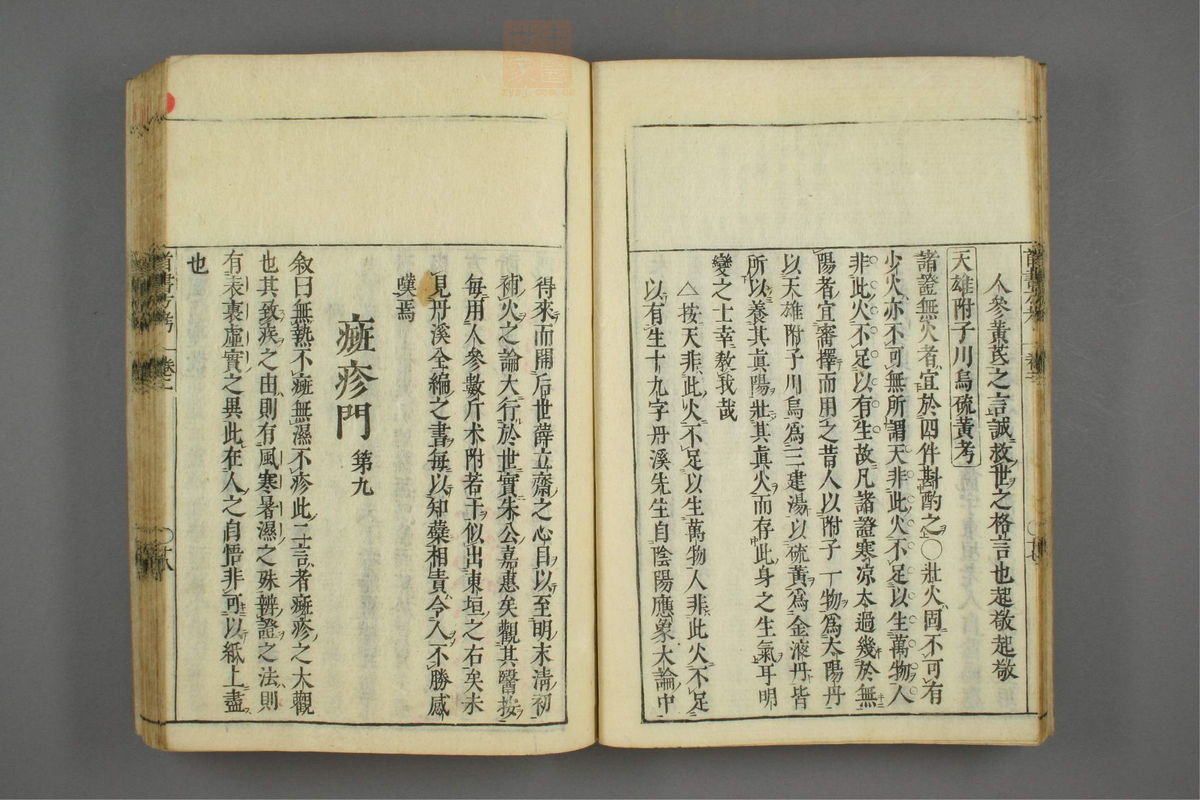 人參黃芪之言誠救世之格言也起敬起敬
天雄附子川烏硫黃考
諸證無火者宜於四件斟酌之○壯火固不可有
少火亦不可無所謂天非此火不足以生萬物人
非此火不足以有生故凡諸證寒涼太過幾於無
陽者宜審擇而用之昔人以附子一物爲太陽丹
以天雄附子川烏爲三建湯以硫黃爲金液丹皆
所以養其眞陽壯其眞火而存此身之生氣耳明
變之士幸教我哉
△按天非此火不足以生萬物人非此火不足
以有生十九字丹溪先生自陰陽應象大論中
得來而開后世薛立齋之心目以至明末清初
補火之論大行於世實朱公嘉惠矣觀其醫按
每用人參數斤术附若干似出東垣之右矣未
見丹溪全編之書每以知蘗相責今人不勝感
嘆焉
痱疹門 第九
叙曰無熱不痱無濕不疹此二言者痱疹之大觀
也其致疾之由則有風寒暑濕之殊辨證之法則
有表裏虛實之異此在人之自悟非可以紙上盡
也
首書方考 卷二 ○廿八